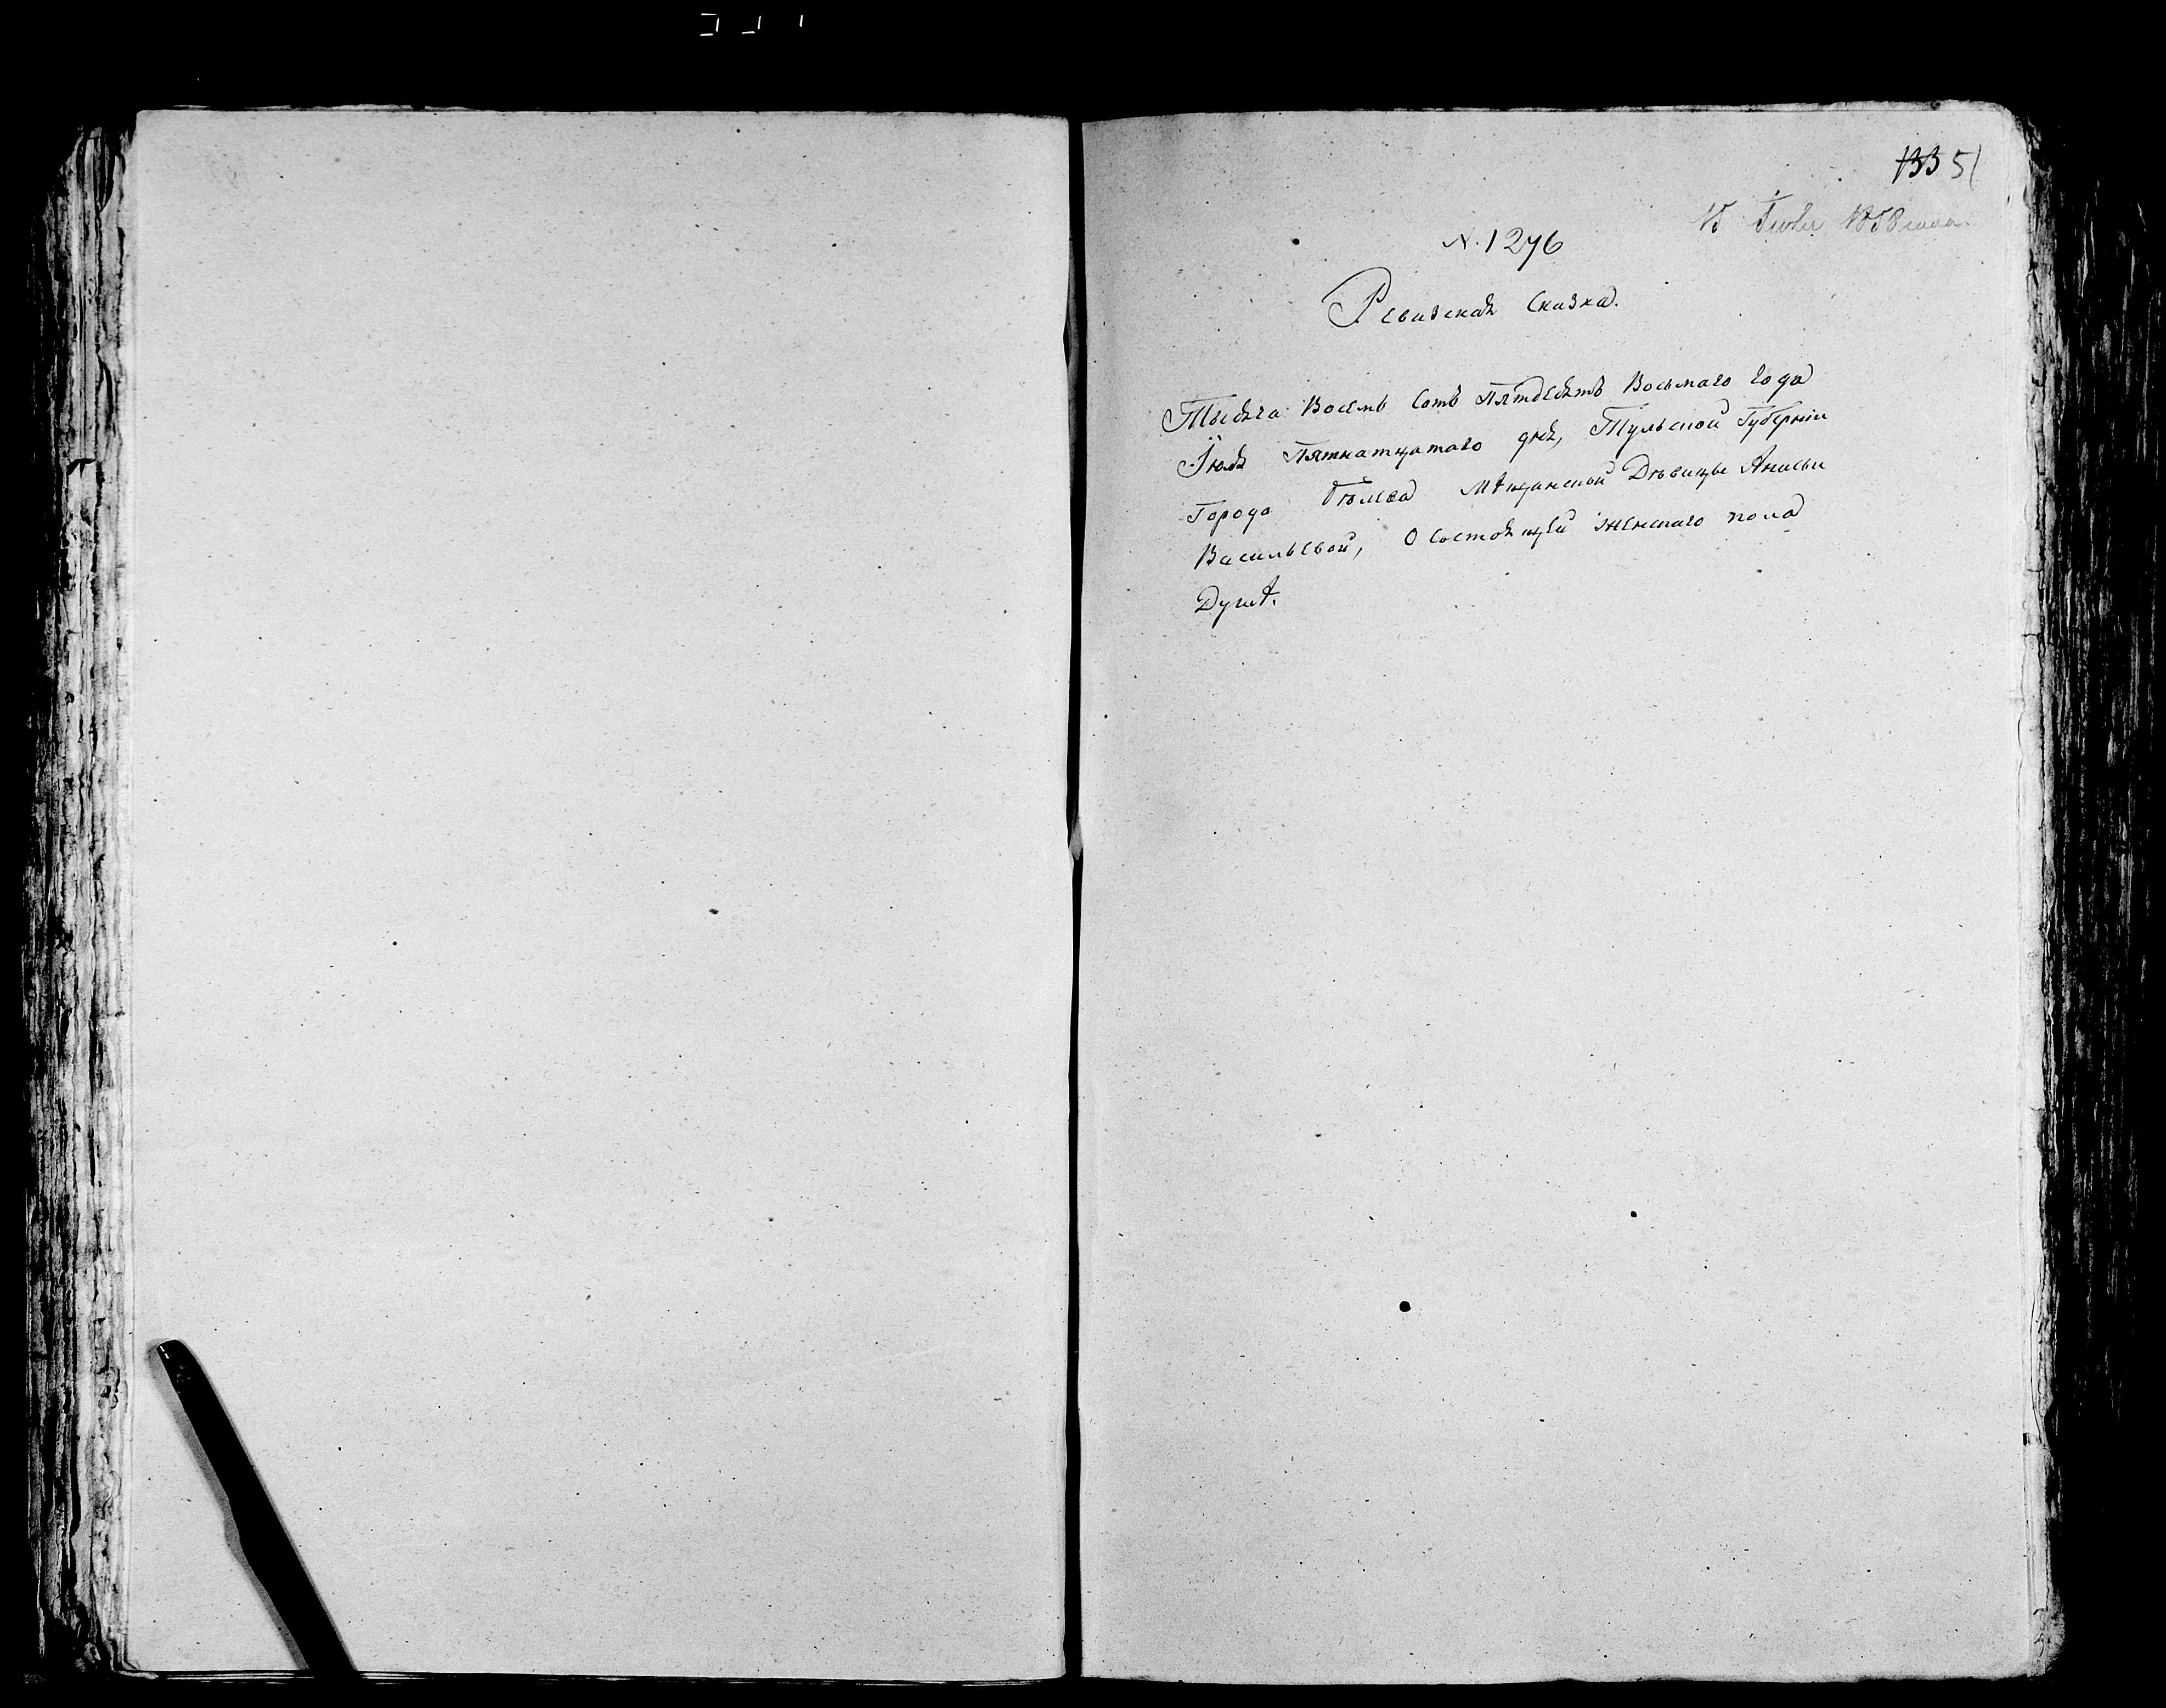 133 51
15 Іюля 1858 года
N. 1276
Ревизская Сказка.
Тысяча Восемь Сотъ Пятдесятъ Восьмаго года
Іюля Пятнатцатаго дня, Тульской Губерніи
Города Бѣлева Мѣщанской Дѣвицы Анисьи
Васильевой, О состоящей женскаго пола
Душѣ.